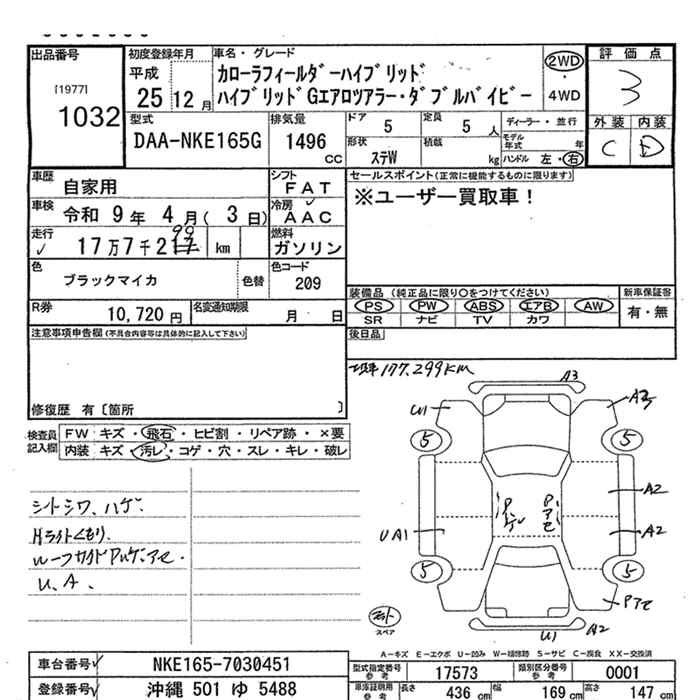 出品番号
[1977]
1032
初度登録年月
平成
25 12 月
車名・グレード
カローラフィールダーハイブリッド
ハイブリッドGエアロツアラー・ダブルバイビー
2WD
・
4WD
評価点
3
外装 内装
C D
型式
DAA-NKE165G
排気量
1496
CC
ドア
5
定員
5 人
形状
ステW
積載
kg
ディーラー・並行
モデル年式 年
ハンドル 左・右
車歴
自家用
車検
令和 9 年 4 月 ( 3 日)
走行
17万7千2 99 km
色
ブラックマイカ
色替
シフト
FAT
冷房
AAC
燃料
ガソリン
色コード
209
R券
10,720 円
名変通知期限
月 日
セールスポイント(正常に機能するものに限ります)
※ユーザー買取車!
装備品 (純正品に限り○をつけてください)
PS PW ABS エアB AW
SR ナビ TV カワ
新車保証書
有・無
後日品
注意事項申告欄(不具合内容等は具体的に記入して下さい)
修復歴 有〔箇所 〕
177,299KM
検査員
記入欄
FW キズ・飛石・ヒビ割・リペア跡・×要
内装 キズ・汚レ・コゲ・穴・スレ・キレ・破レ
シートシワ、ハゲ
Hライトくもり
ルーフサイドPハゲ、アセ.
U、A、
A3
U1
A3
5
5
A2
A2
UA1
Pハゲ
Pアセ
5
5
Pアセ
U1
A2
スペア
A-キズ E-エクボ U-凹み W-補修跡 S-サビ C-腐食 XX-交換済
車台番号
NKE165-7030451
登録番号
沖縄 501 ゆ 5488
型式指定番号
参考
17573
類別区分番号
参考
0001
車庫証明用
参考
長さ
436 cm
幅
169 cm
高さ
147 cm